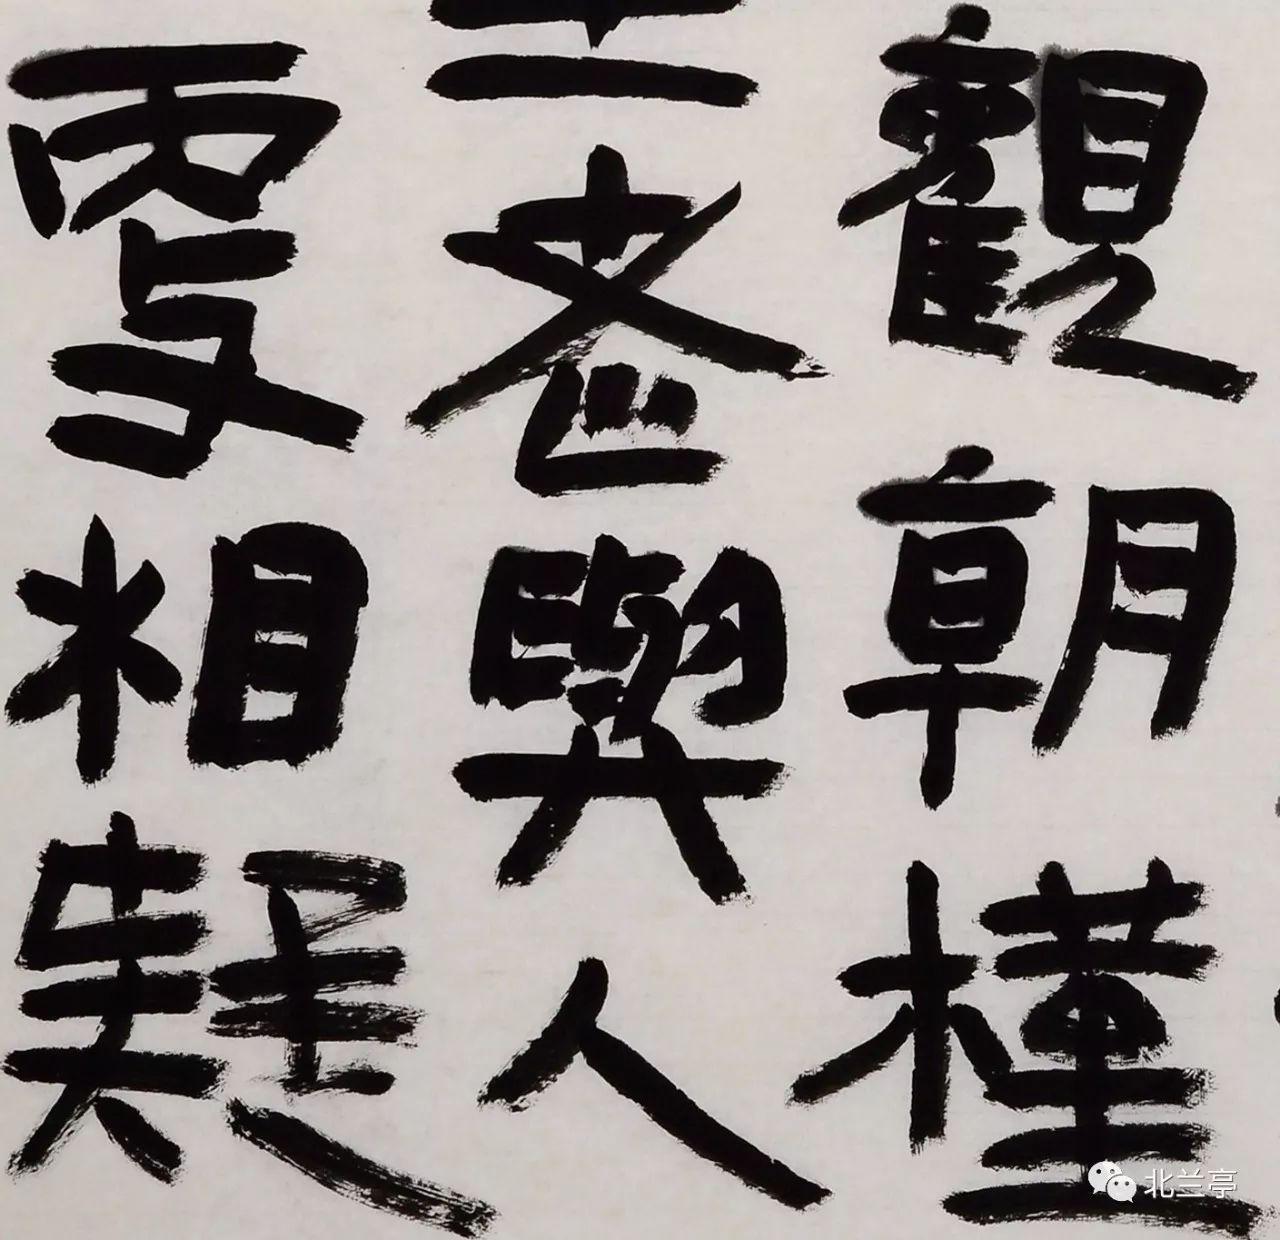 觀朝槿
老與人
更相疑
北兰亭